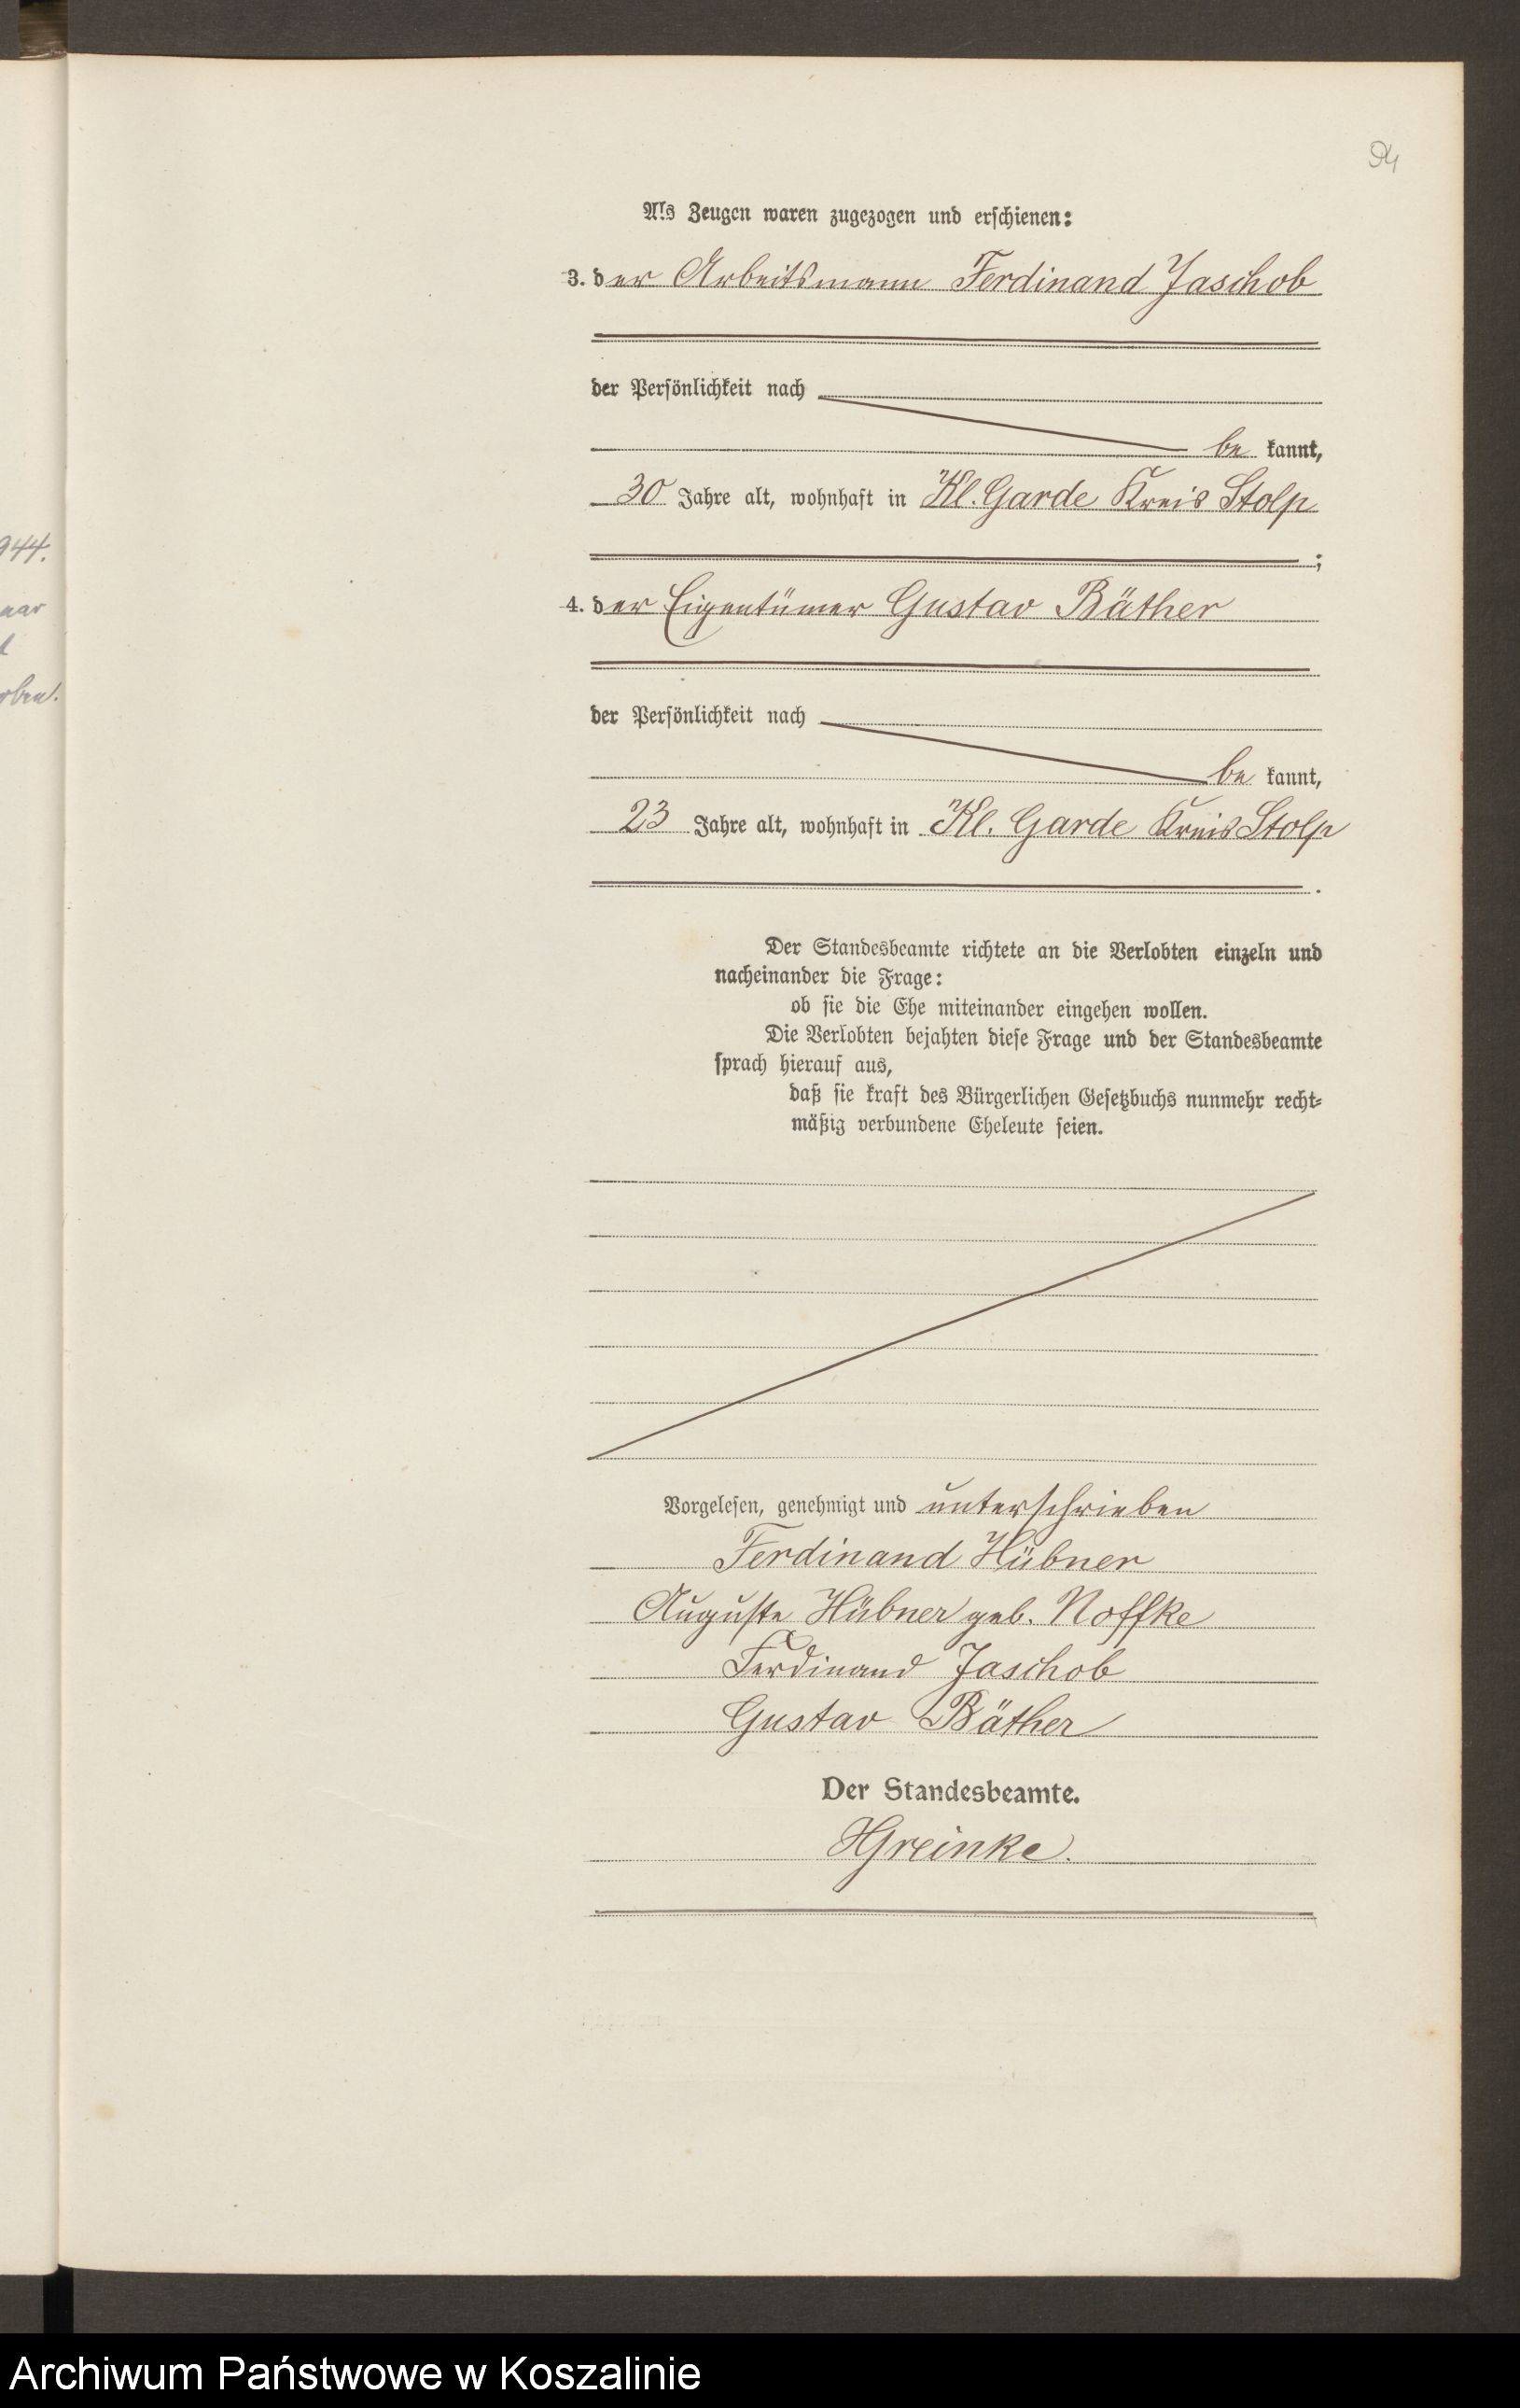 94
Als Zeugen waren zugezogen und erschienen:
3. der Arbeitsmann Ferdinand Jaschob
der Persönlichkeit nach
be kannt,
30 Jahre alt, wohnhaft in Kl. Garde Kreis Stolp
;
4. der Eigentümer Gustav Bäther
der Persönlichkeit nach
be kannt,
23 Jahre alt, wohnhaft in Kl. Garde Kreis Stolp
.
Der Standesbeamte richtete an die Verlobten einzeln und
nacheinander die Frage:
ob sie die Ehe miteinander eingehen wollen.
Die Verlobten bejahten diese Frage und der Standesbeamte
sprach hierauf aus,
daß sie kraft des Bürgerlichen Gesetzbuchs nunmehr recht-
mäßig verbundene Eheleute seien.
Vorgelesen, genehmigt und unterschrieben
Ferdinand Hübner
Auguste Hübner geb. Noffke
Ferdinand Jaschob
Gustav Bäther
Der Standesbeamte.
HGreinke.
944.
Archiwum Państwowe w Koszalinie